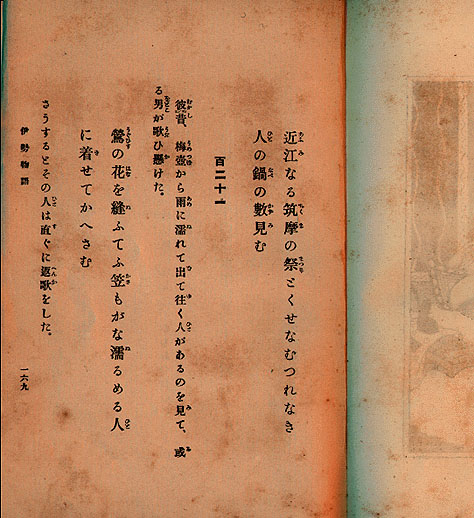 近江なる筑摩の祭とくせなむつれなき
人の鍋の數見む
百二十一
往昔、梅壺から雨に濡れて出て往く人があるのを見て、或
る男が歌ひ懸けた。
鶯の花を縫ふてふ笠もがな濡るめる人
に着せてかへさむ
さうするとその人は直ぐに返歌をした。
伊勢物語
一六九